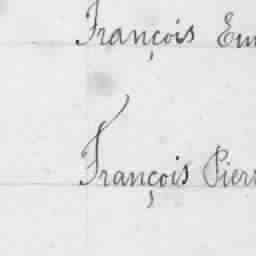 François Em
François Pierr